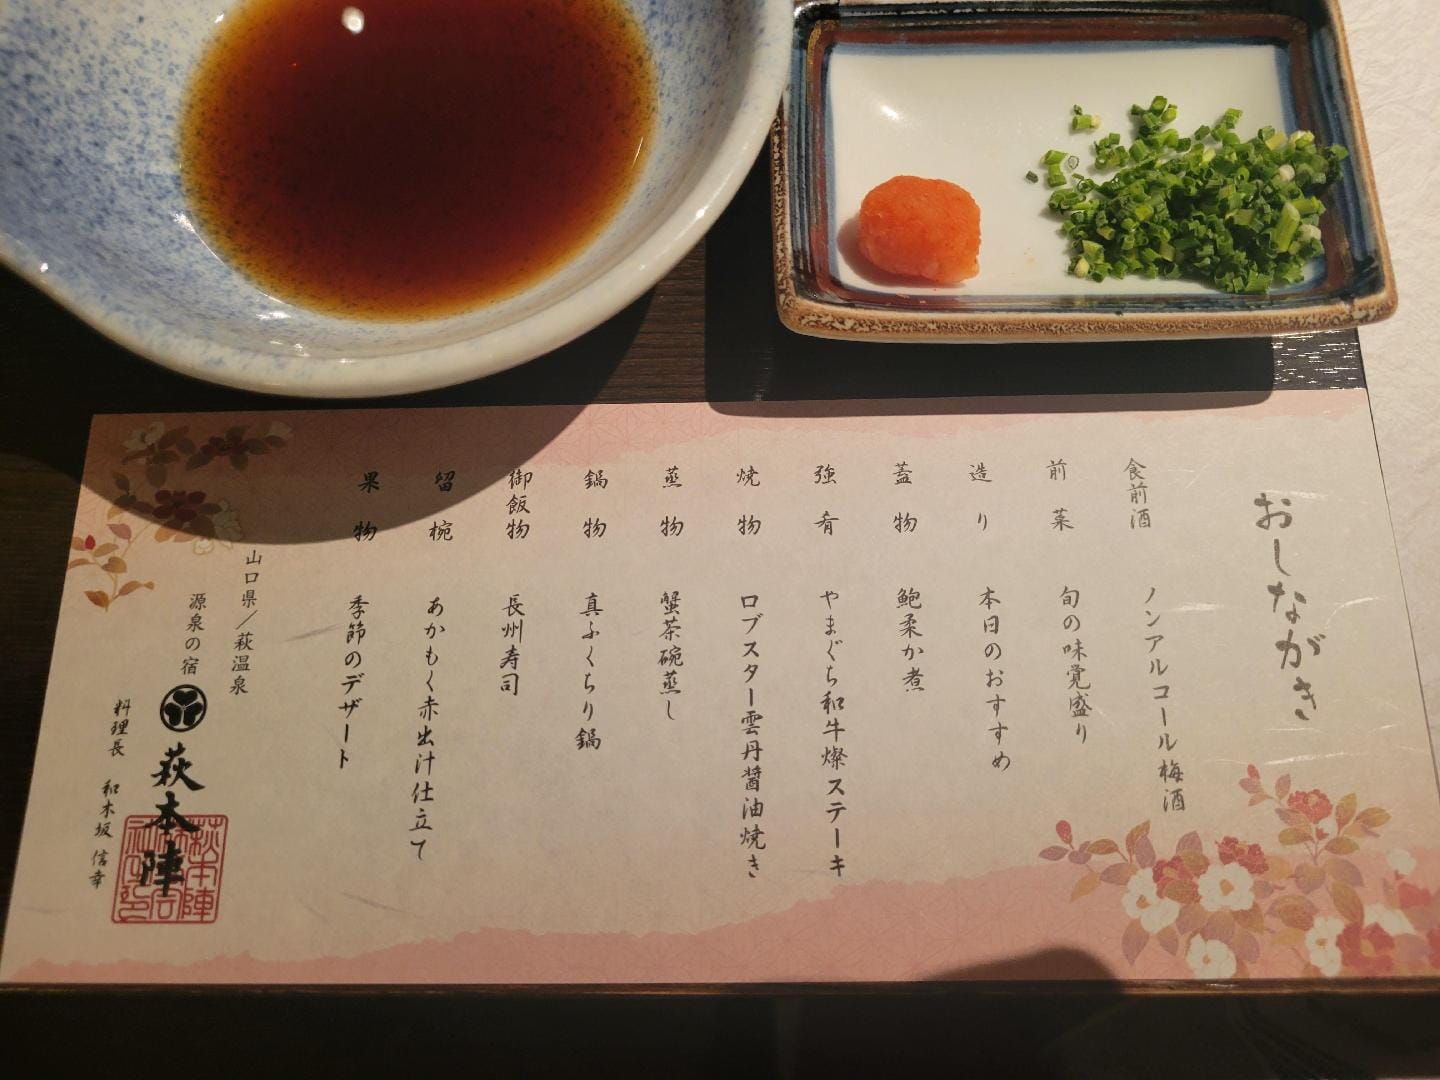 おしながき
食前酒 ノンアルコール梅酒
前菜 旬の味覚盛り
造り 本日のおすすめ
蓋物 鮑柔か煮
強肴 やまぐち和牛燦ステーキ
焼物 ロブスター雲丹醤油焼き
蒸物 蟹茶碗蒸し
鍋物 真ふくちり鍋
御飯物 長州寿司
留椀 あかもく赤出汁仕立て
果物 季節のデザート
山口県／萩温泉
源泉の宿
萩本陣
料理長 和木坂 信幸